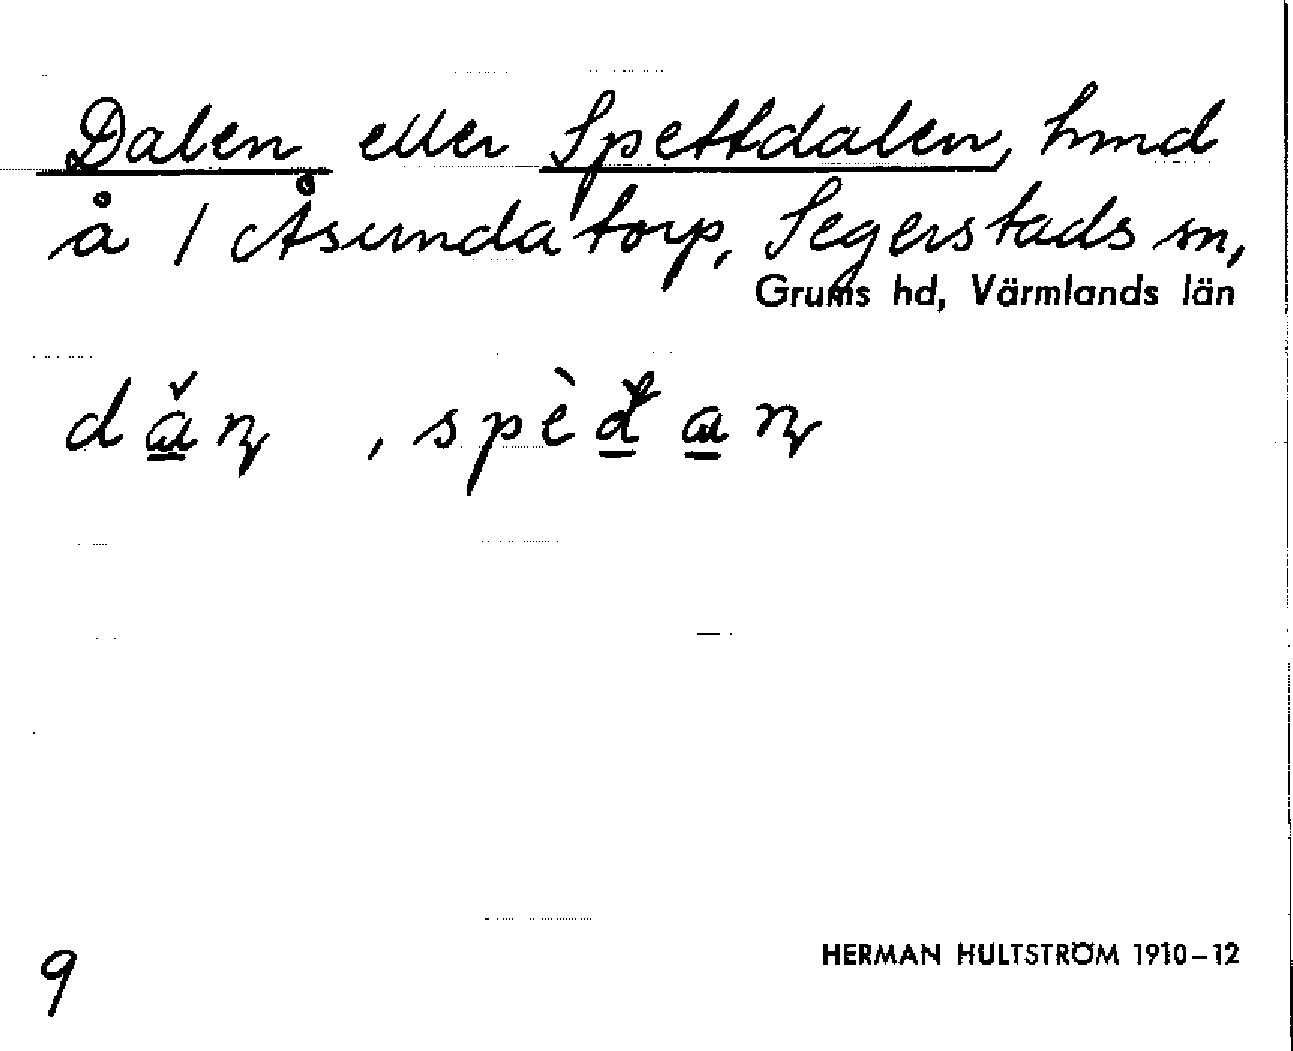 Dalen eller Spettdalen, hmd
å 1 Åsundatorp, Segerstads sn,
Grums hd, Värmlands län
HERMAN HULTSTRÖM 1910–12
9